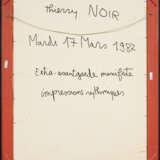 thierry NOIR
Mardi 17 Mars 1982
Extra-avantgarde manifeste
impressions rythmiques